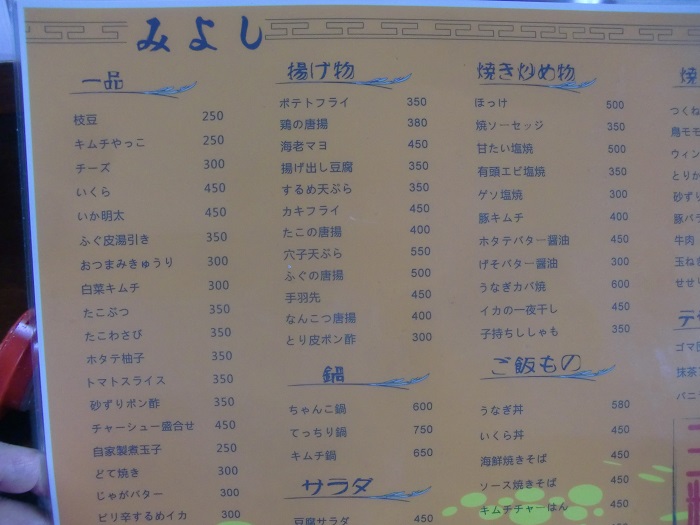 みよし
一品
枝豆 250
キムチやっこ 250
チーズ 300
いくら 450
いか明太 450
ふぐ皮湯引き 350
おつまみきゅうり 300
白菜キムチ 300
たこぶつ 350
たこわさび 350
ホタテ柚子 350
トマトスライス 350
砂ずりポン酢 350
チャーシュー盛合せ 450
自家製煮玉子 250
どて焼き 300
じゃがバター 300
ピリ辛するめイカ 300
揚げ物
ポテトフライ 350
鶏の唐揚 380
海老マヨ 450
揚げ出し豆腐 350
するめ天ぷら 350
カキフライ 450
たこの唐揚 400
穴子天ぷら 550
ふぐの唐揚 500
手羽先 450
なんこつ唐揚 400
とり皮ポン酢 300
鍋
ちゃんこ鍋 600
てっちり鍋 750
キムチ鍋 650
サラダ
豆腐サラダ 450
焼き炒め物
ほっけ 500
焼ソーセッジ 350
甘たい塩焼 500
有頭エビ塩焼 350
ゲソ塩焼 300
豚キムチ 400
ホタテバター醤油 450
げそバター醤油 300
うなぎカバ焼 600
イカの一夜干し 450
子持ちししゃも 350
ご飯もの
うなぎ丼 580
いくら丼 450
海鮮焼きそば 450
ソース焼きそば 450
キムチチャーはん 450
焼
つくね
鳥モモ
ウィン
とりか
砂ずり
豚バラ
牛肉
玉ねぎ
せせり
デ
ゴマ団
抹茶
バニラ